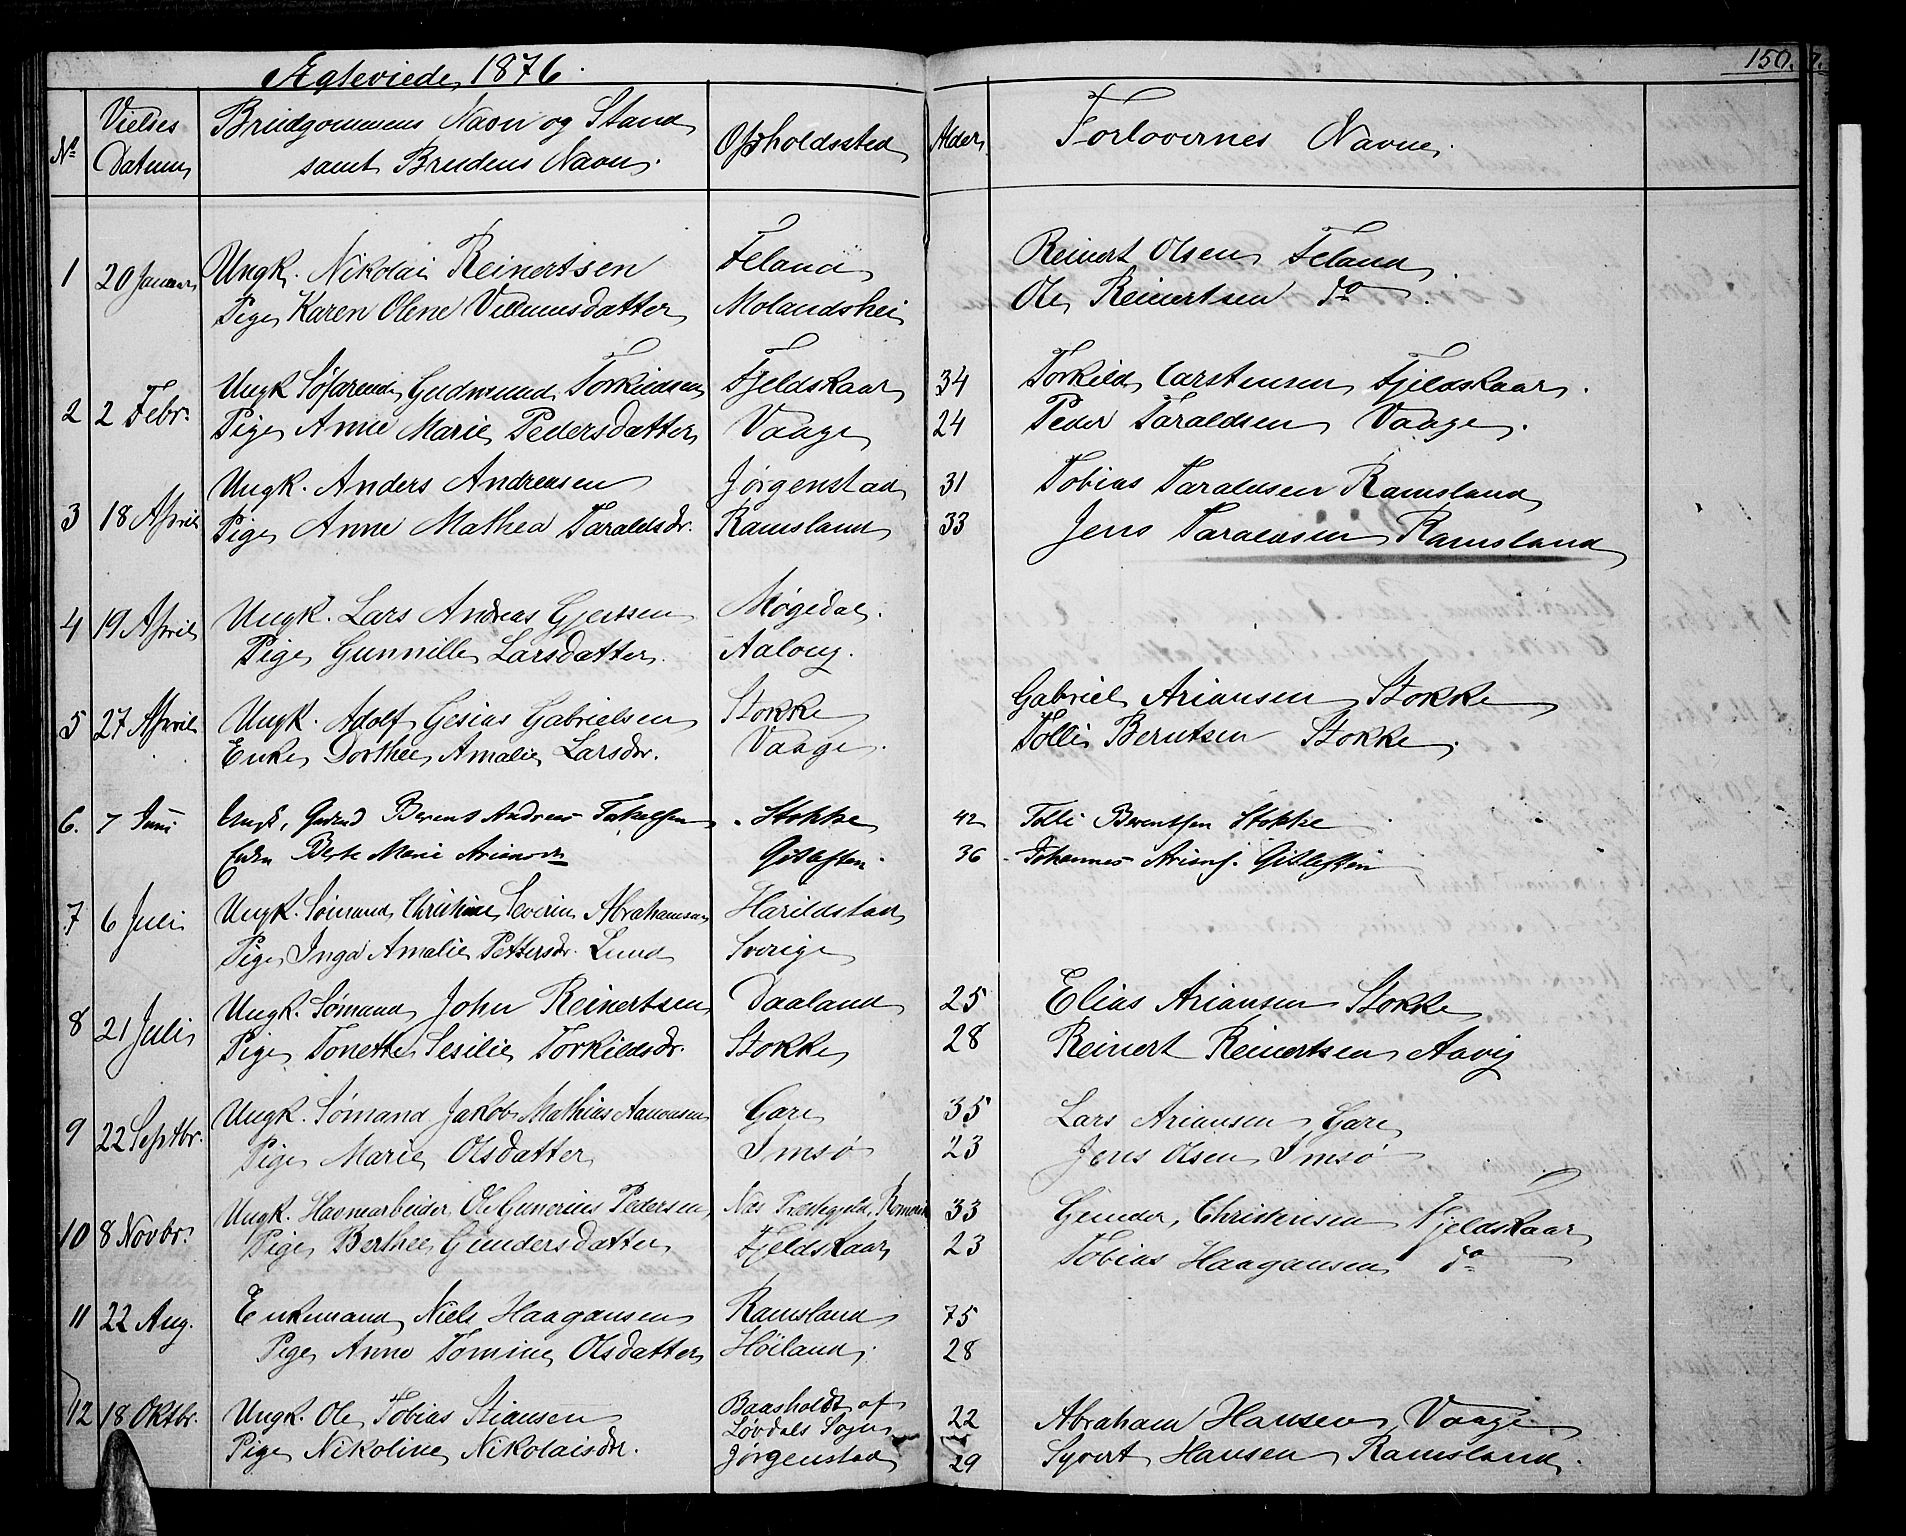 Ægteviede, 1876.
150.
No
Vielses Datum
Brudgommens Navn og Stand samt Brudens Navn.
Opholdssted
Alder
Forlovernes Navne.
1 20 Januar Ungk. Nikolai Reinertsen Feland Reinert Olsen Feland
Pige Karen Olene Villumsdatter Molandshei Ole Reinertsen do.
2 2 Febr. Ungk Søfarende Gudmund Torkildsen Fjeldskaar 34 Torkild Carstensen Fjeldskaar.
Pige Anne Marie Pedersdatter Vaage 24 Peder Taraldsen Vaage.
3 18 April Ungk. Anders Andreasen Jørgenstad 31 Tobias Taraldsen Ramsland
Pige Anne Mathea Taraldsdr. Ramsland 33 Jens Taraldsen Ramsland
4 19 April Ungk. Lars Andreas Gjertsen Møgedal.
Pige Gunnille Larsdatter. Aalong.
5 27 April Ungk. Adolf Gesius Gabrielsen Stokke Gabriel Ariansen Stokke
Enke Dorthee Amalie Larsdr. Vaage. Tolli Berntsen Stokke.
6. 7 Juni Ungk. Berent Andreas Stokke 42 Tolli Berentsen Stokke
Enken Berte Marie 36 Johannes
7 6 Juli Ungk. Sømand Christine Severin Abrahamsen Harildstad
Pige Inga Amalie Pettersdr. Lund Sverige
8 21 Juli Ungk. Sømand John Reinertsen Daaland 25 Elias Ariansen Stokke
Pige Tonette Sesilie Torkildsdr. Stokke 28 Reinert Reinertsen Aavig
9 22 Septbr. Ungk. Sømand Jakob Mathias Aanensen Gare 35 Lars Ariansen Gare
Pige Marie Olsdatter Imsø 23 Jens Olsen Imsø
10 8 Novbr. Ungk. Havnearbeider Ole Gunerius Pedersen Næs Præstegjeld, Romerike 33 Gunder Christensen Fjeldskaar
Pige Berthee Gundersdatter Fjeldskaar 23 Tobias Haagansen do
11 22 Aug. Enkemand Niels Haagansen Ramsland 75
Pige Anne Tomine Olsdatter Høiland. 28
12 18 Oktbr. Ungk. Ole Tobias Stiansen Baasholdt af Løvdals Sogn 22 Abraham Hansen Vaage
Pige Nikoline Nikolaisdr. Jørgenstad 29 Syvert Hansen Ramsland.